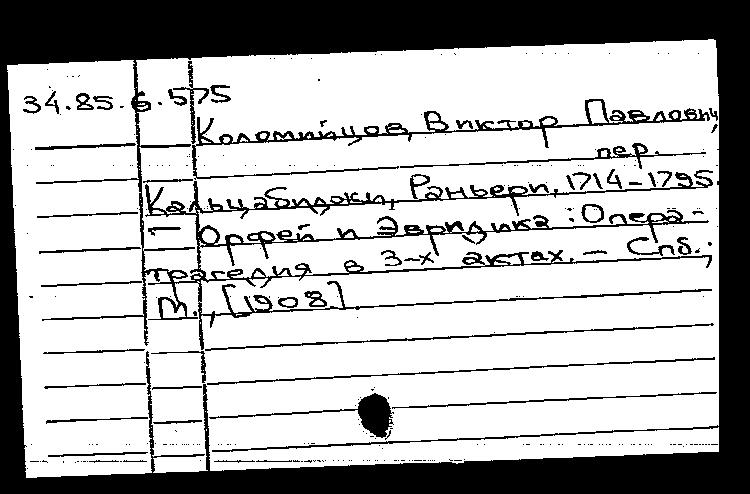 34.85.6.575
Коломийцов, Виктор Павлович,
пер.
Кальцабиджи, Раньери, 1714-1795.
— Орфей и Эвридика : Опера-
трагедия в 3-х актах. — Спб.;
М., [1908].